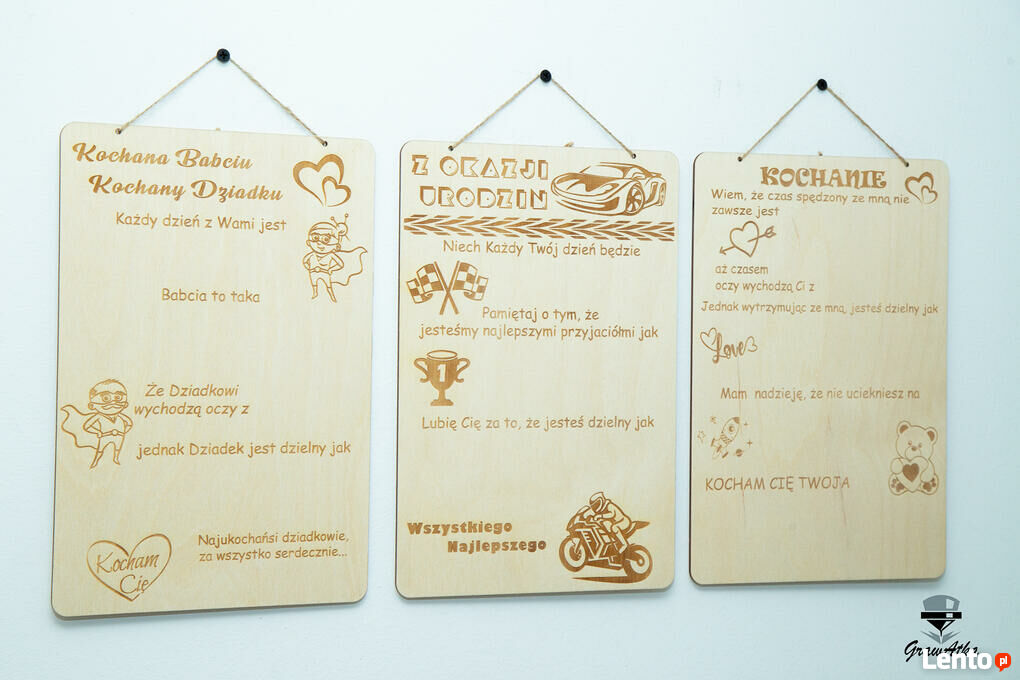 Kochana Babciu
Kochany Dziadku
Każdy dzień z Wami jest
Babcia to taka
Że Dziadkowi
wychodzą oczy z
jednak Dziadek jest dzielny jak
Kocham
Cię
Najukochańsi dziadkowie,
za wszystko serdecznie...
Z OKAZJI
URODZIN
Niech Każdy Twój dzień będzie
Pamiętaj o tym, że
jesteśmy najlepszymi przyjaciółmi jak
1
Lubię Cię za to, że jesteś dzielny jak
Wszystkiego
Najlepszego
KOCHANIE
Wiem, że czas spędzony ze mną nie
zawsze jest
aż czasem
oczy wychodzą Ci z
Jednak wytrzymując ze mną, jesteś dzielny jak
Love
Mam nadzieję, że nie uciekniesz na
KOCHAM CIĘ TWOJA
GrawAtka
Lento pl